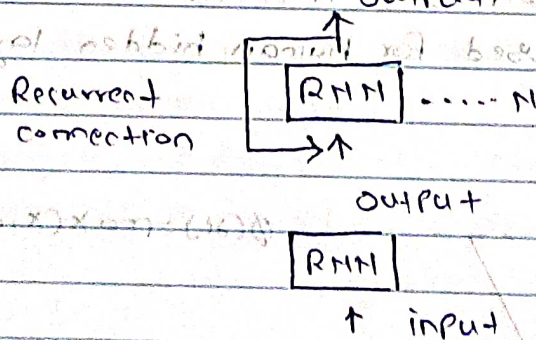 Recurrent
connection
RNN ..... N
output
RNN
↑ input